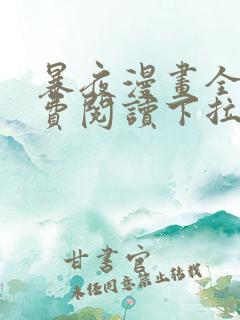 暴夜漫畫全
費閱讀下拉
甘書官
未經同意禁止轉載